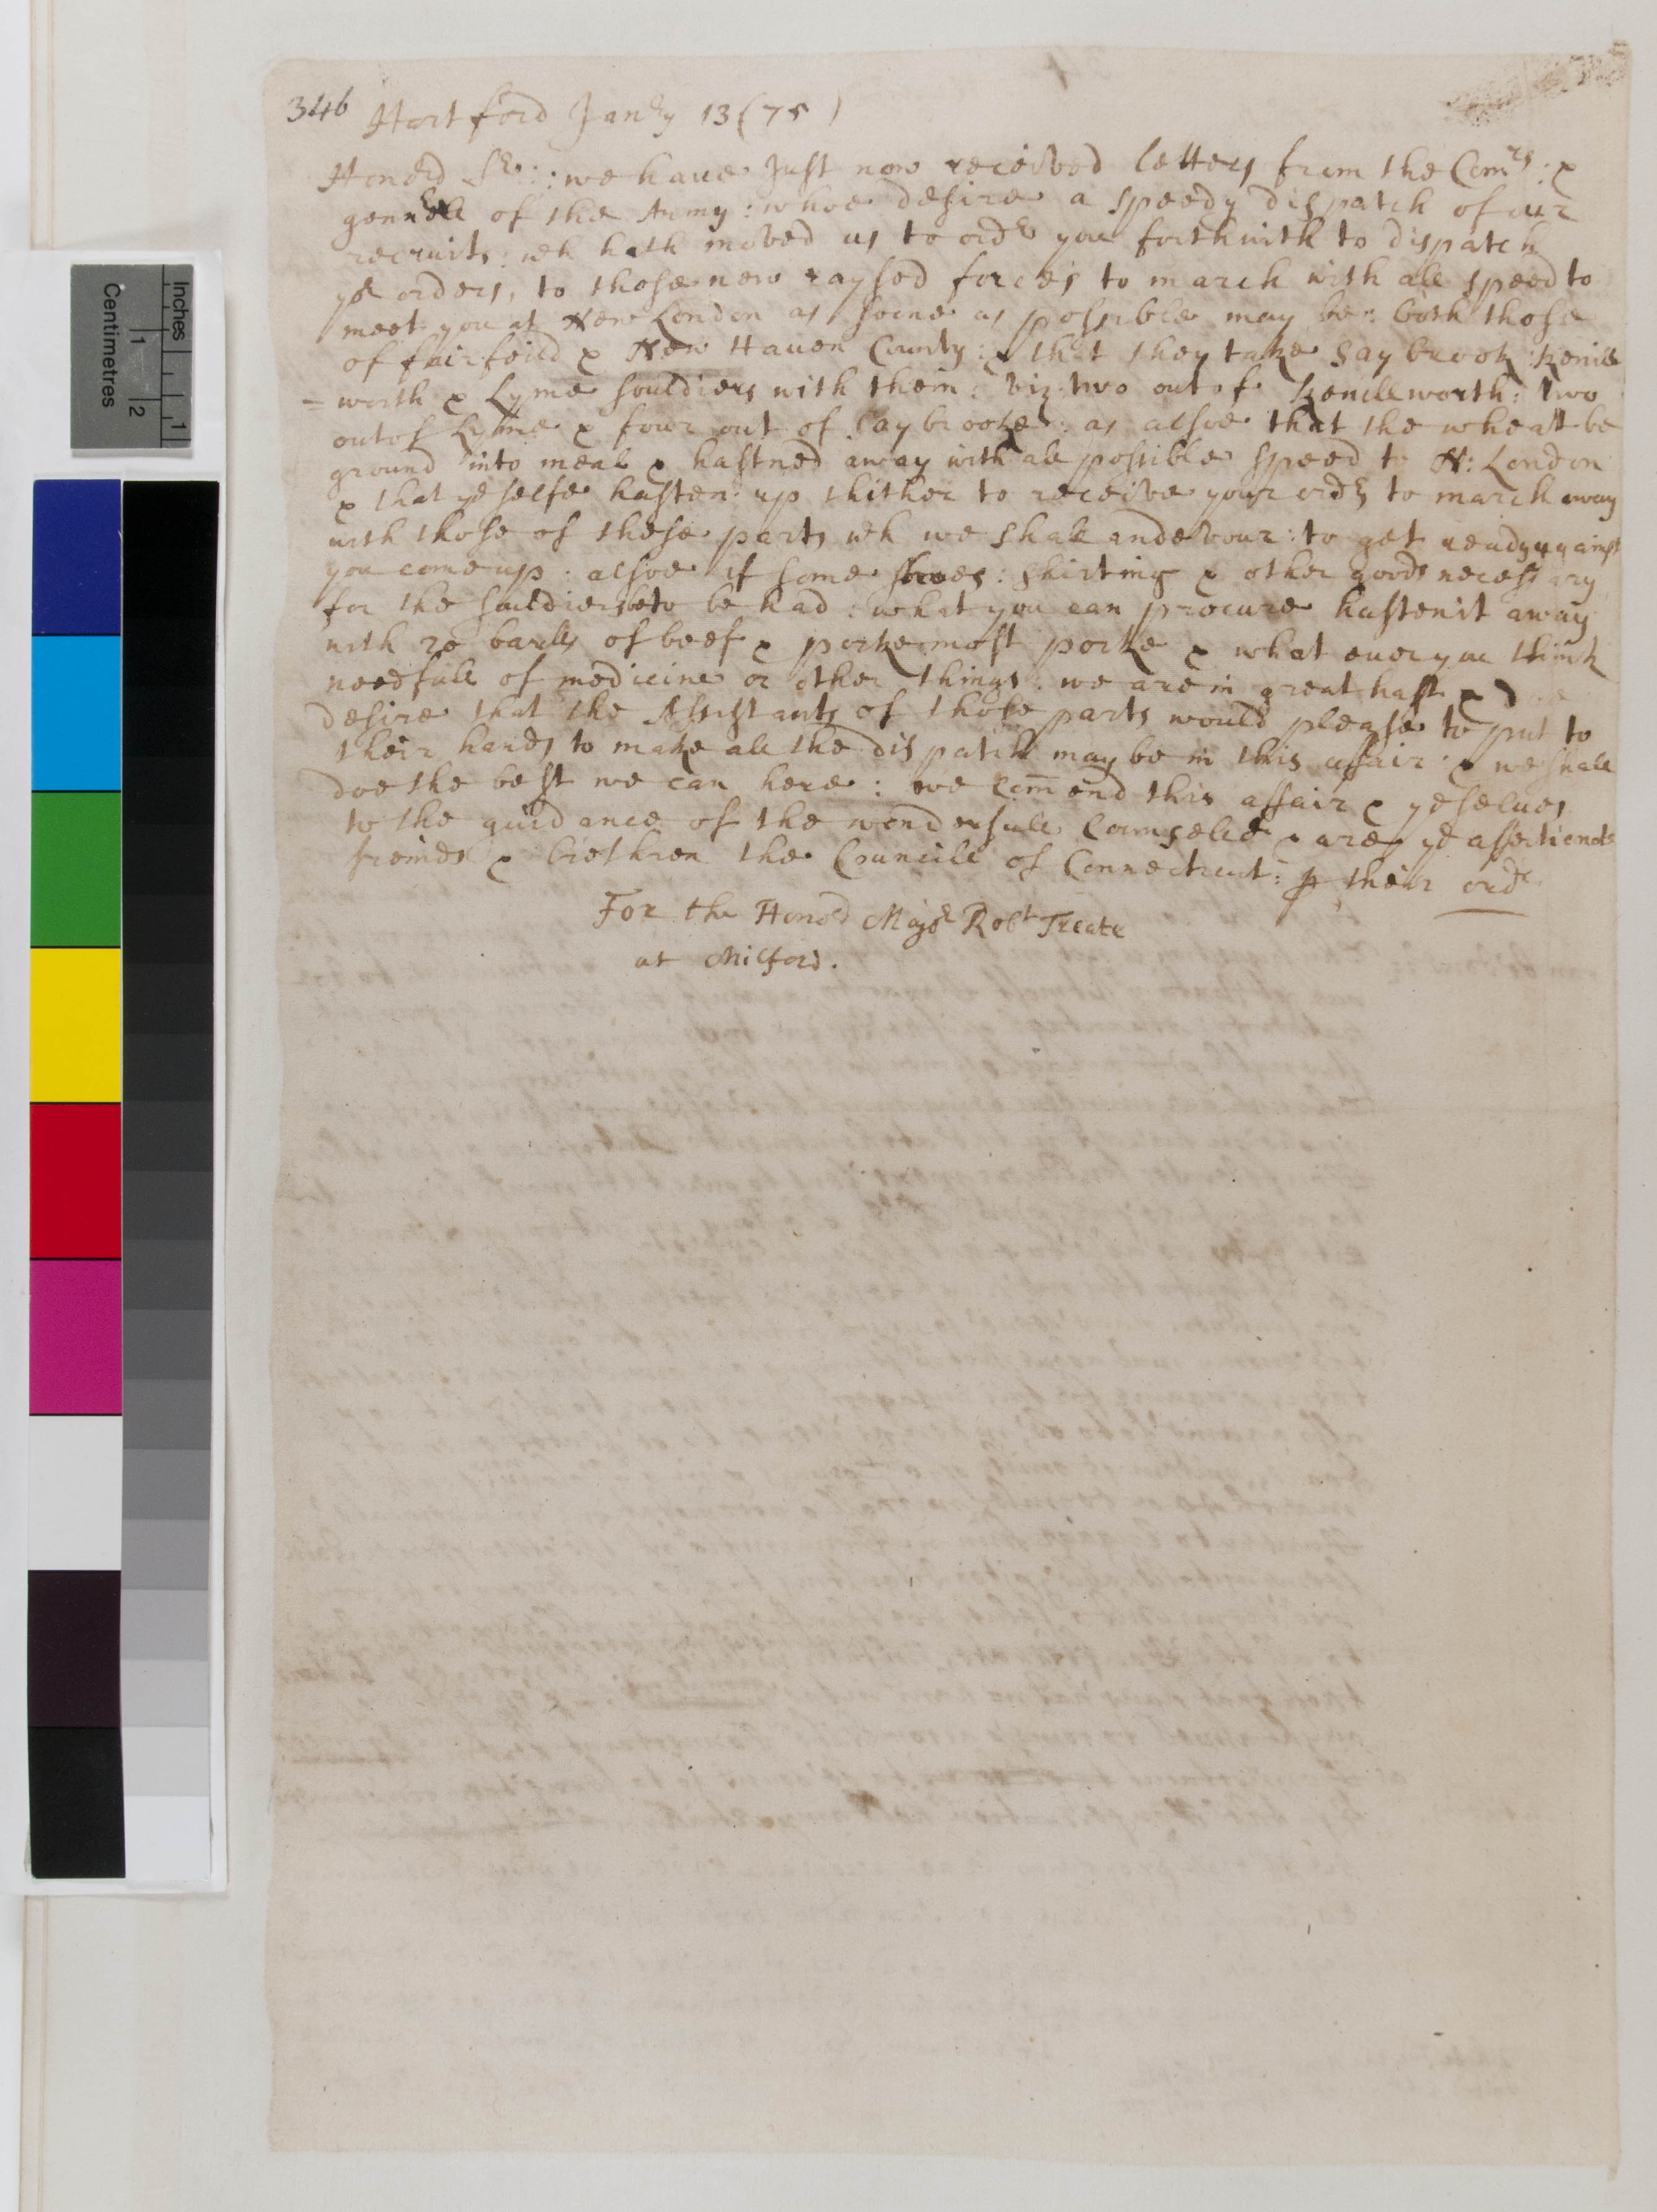 346 Hartford Janry 13 (75)
Honord Sr: we haue Just now received letters from the Comrs: &
gennrll of the Army: whoe desire a speedy dispatch of our
recruits: wch hath moved us to ordr you forthwith to dispatch
yor orders, to those new raysed forces to march with all speed to
meet you at New London as soone as possible may be: both those
of fairfeild & New Hauen County: & that they take Saybrook: Kenill
=worth & Lyme souldiers with them: viz: two out of Kenillworth: two
out of Lyme & four out of Saybrooke: as alsoe that the wheatt be
ground into meal & hastned away with all possible speed to N: London
& that yorselfe hasten up thither to receive your ordrs to march away
with those of these parts wch we shall endevour: to get ready against
you come up: alsoe if some shoes: shirting & other goods necessary
for the souldiers to be had: what you can procure hasten it away
with 20 barlls of beef & porke most porke & what euer you think
needfull of medicine or other things: we are in great hast &
desire that the Assistants of those parts would please to put to
their hands to make all the dispatch may be in this affair: & we shall
doe the best we can here: we Comend this affair & yorselues
to the guidance of the wonderfull Counseller & are yor affectionate
freinds & brethren the Councill of Connecticut: p their ordr
For the Honord Major Robt Treate
at Milford.
Inches
1
Centimetres
1
2